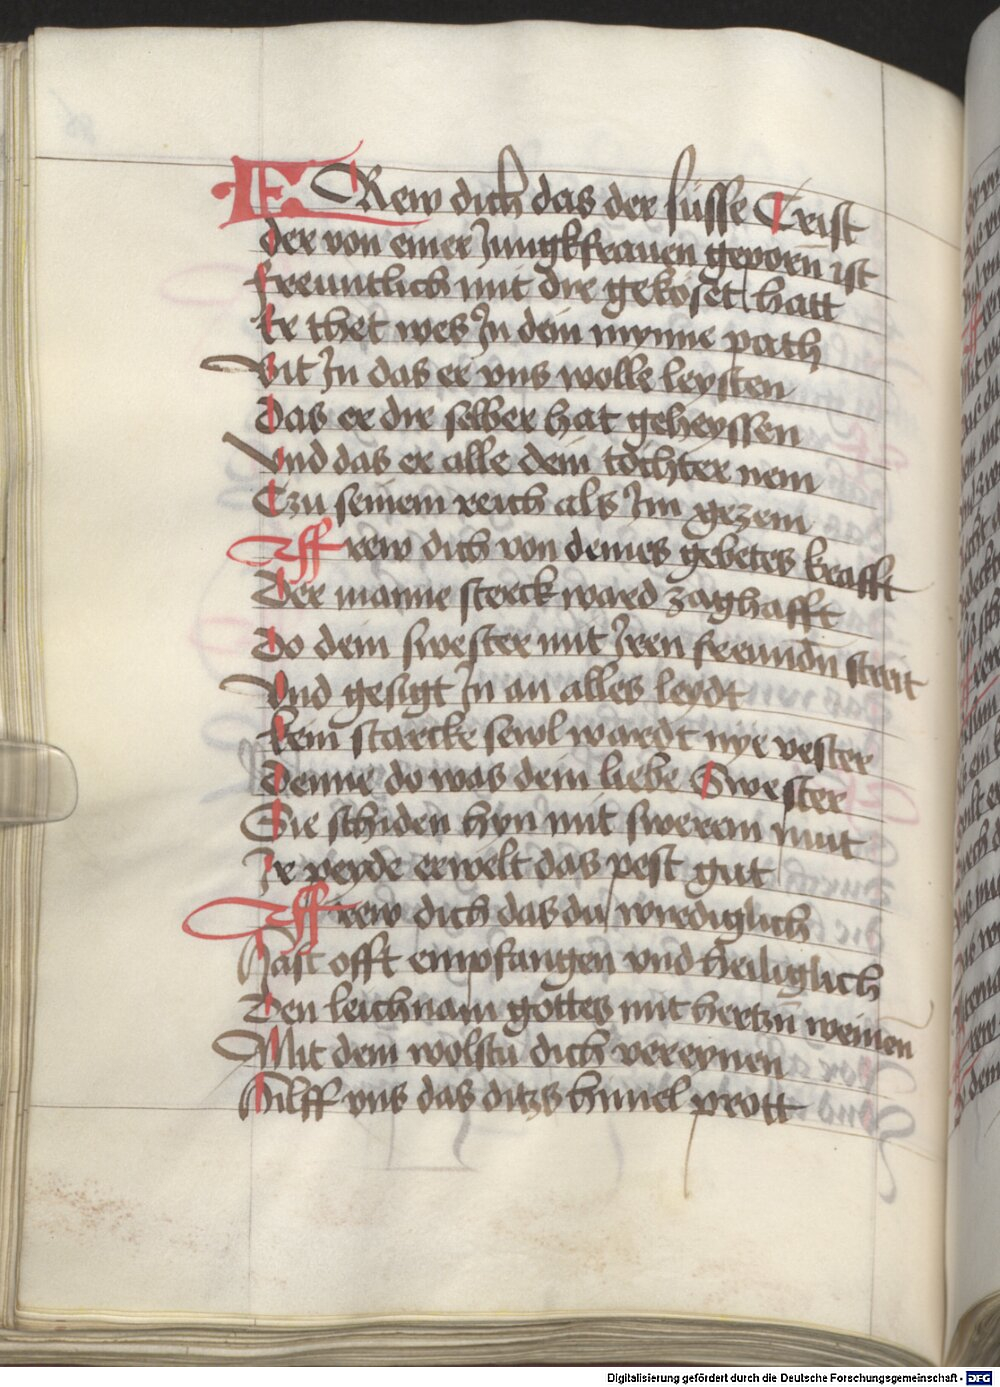 FRew dich das der susse Crist
der von einer Jungkfrauen geporn ist
freuntlich mit dir gekoset hatt
Er thet wes Jn dein mynne path
Bit Jn das er vns wolle leysten
Das er dir selber hat geheyssen
Vnd das er alle dein tochter nem
Czu seinem reich als Jm gezem
Ffrew dich von deines gebetes krafft
Der manne sterck ward zaghafft
Do dein swester mit Jren freundn streit
Vnd gesigt Jn an alles leydt
Kein starcke sewl wardt nye vester
Denne do was dein liebe Swester
Sie schiden hyn mit swerem mut
Jr peyde erwelt das pest gut
Ffrew dich das du wirdiglich
Hast offt empfangen vnd heiliglich
Den leichnam gottes mit hertzn weinen
Mit dem wolstu dich vereynen
Hilff vns das ditzs himel prott
Digitalisierung gefördert durch die Deutsche Forschungsgemeinschaft - DFG